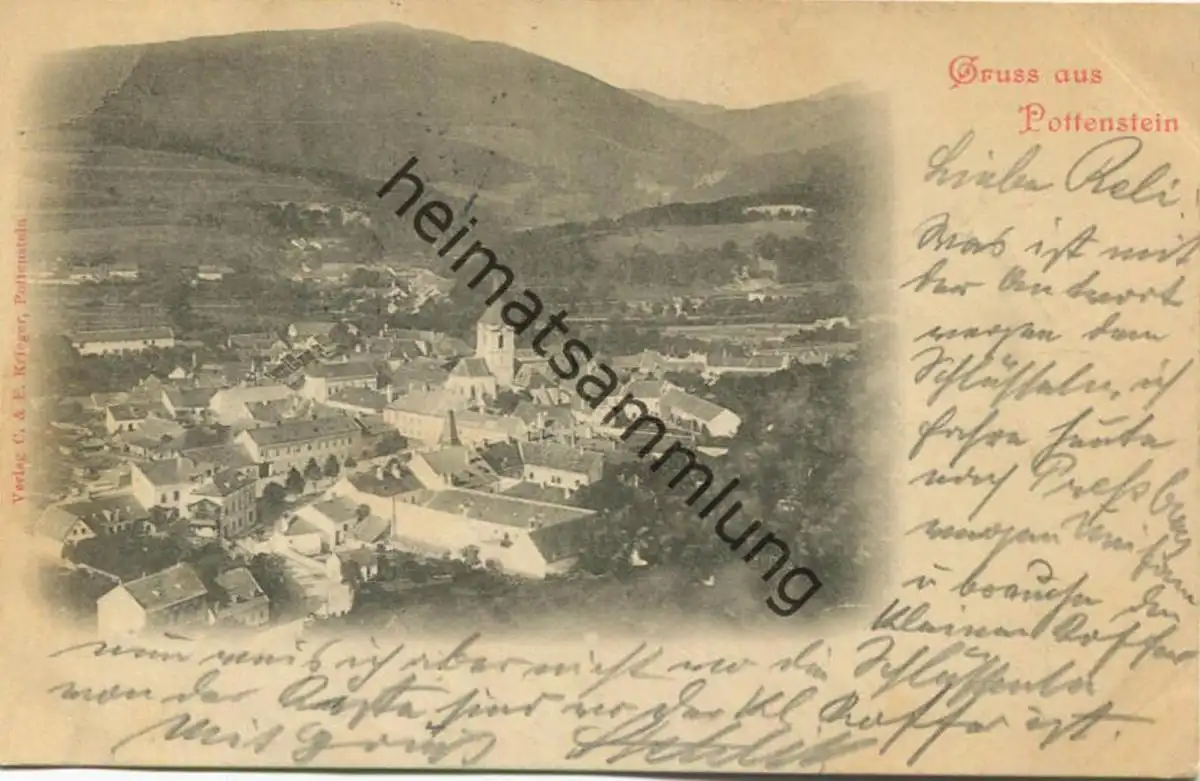 Gruss aus
Pottenstein
Verlag C. & E. Krieger, Pottenstein
heimatsammlung
Liebe Reli
Was ist mit
der Antwort
wegen dem
Schlüsseln, ich
fahre heute
nach Pressburg
wegen
u brauche den
kleinen Koffer
nun weis ich aber nicht wo die Schlüsseln
von der sind wo der Kl Koffer ist.
Mit Gruss